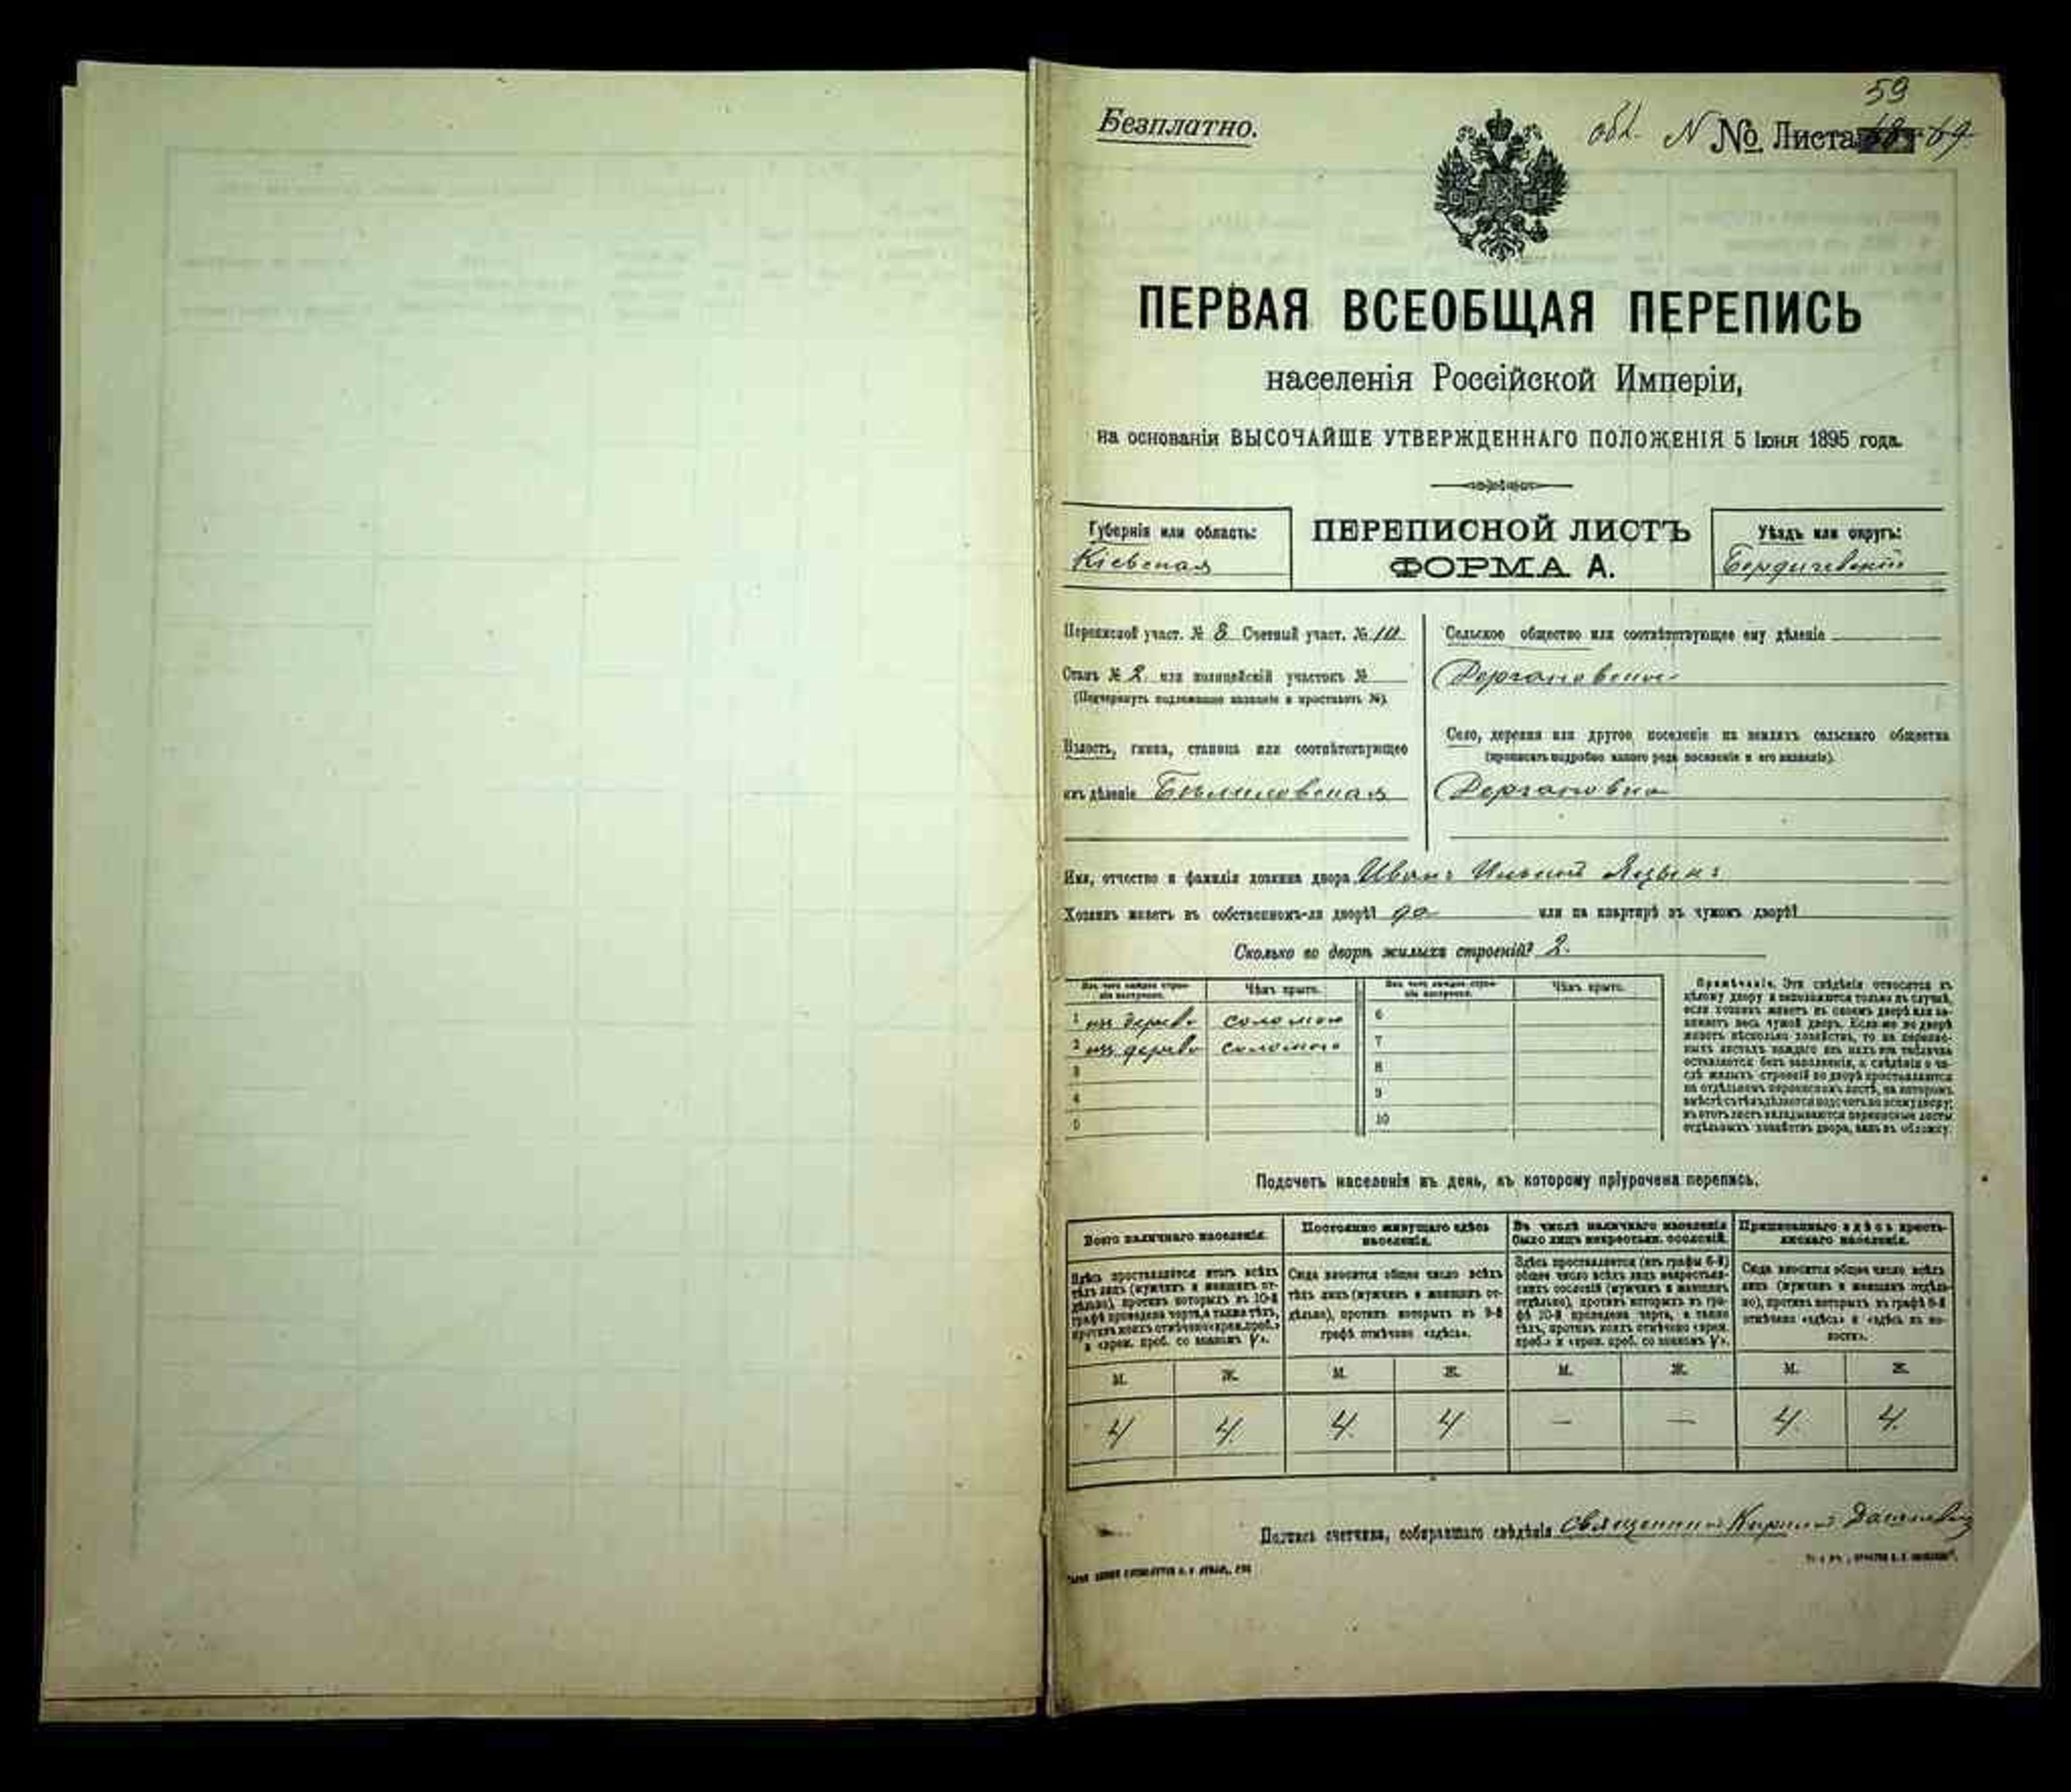 59
Безплатно.
№ Листа 69
ПЕРВАЯ ВСЕОБЩАЯ ПЕРЕПИСЬ
населенія Россійской Имперіи,
на основаніи ВЫСОЧАЙШЕ УТВЕРЖДЕННАГО ПОЛОЖЕНІЯ 5 Іюня 1895 года.
Губернія или область:
Кіевская
ПЕРЕПИСНОЙ ЛИСТЪ
ФОРМА А.
Уѣздъ или округъ:
Бердичевскій
Переписной участ. № 8 Счетный участ. № 10
Станъ № 2 или полицейскій участокъ №
(Подчеркнуть подлежащее названіе и проставить №).
Волость, гмина, станица или соотвѣтствующее
имъ дѣленіе Бѣлиловская
Сельское общество или соотвѣтствующее ему дѣленіе
Дергановское
Село, деревня или другое поселеніе на земляхъ сельскаго общества
(прописать подробно какого рода поселеніе и его названіе).
Дергановка
Имя, отчество и фамилія хозяина двора Иванъ
Хозяинъ живетъ въ собственномъ-ли дворѣ? да или на квартирѣ въ чужомъ дворѣ?
Сколько во дворѣ жилыхъ строеній? 2.
Изъ чего каждое строеніе построено. Чѣмъ крыто. Изъ чего каждое строеніе построено. Чѣмъ крыто.
1 изъ дерева соломою 6
2 изъ дерева соломою 7
3 8
4 9
5 10
Примѣчаніе. Эти свѣдѣнія относятся къ
цѣлому двору и заполняются только въ случаѣ,
если хозяинъ живетъ въ своемъ дворѣ или занимаетъ
весь чужой дворъ. Если же во дворѣ
живетъ нѣсколько хозяйствъ, то на переписныхъ
листахъ каждаго изъ нихъ эта табличка
оставляется безъ заполненія, а свѣдѣнія о числѣ
жилыхъ строеній во дворѣ проставляются
на отдѣльномъ переписномъ листѣ, на которомъ
вмѣстѣ съ тѣмъ дѣлается подсчетъ по всему двору;
въ этотъ листъ вкладываются переписные листы
отдѣльныхъ хозяйствъ двора, какъ въ обложку.
Подсчетъ населенія въ день, къ которому пріурочена перепись.
Всего наличнаго населенія.
Здѣсь проставляется итогъ всѣхъ
тѣхъ лицъ (мужчинъ и женщинъ отдѣльно),
противъ которыхъ въ 10-й
графѣ проведена черта, а также тѣхъ,
противъ коихъ отмѣчено «врем. проб.»
и «врем. проб. со знакомъ V».
Постоянно живущаго здѣсь
населенія.
Сюда вносится общее число всѣхъ
тѣхъ лицъ (мужчинъ и женщинъ отдѣльно),
противъ которыхъ въ 9-й
графѣ отмѣчено «здѣсь».
Въ числѣ наличнаго населенія
было лицъ некрестьян. сословій.
Здѣсь проставляется (изъ графы 6-й)
общее число всѣхъ лицъ некрестьянскихъ
сословій (мужчинъ и женщинъ
отдѣльно), противъ которыхъ въ графѣ
10-й проведена черта, а также
тѣхъ, противъ коихъ отмѣчено «врем.
проб.» и «врем. проб. со знакомъ V».
Приписаннаго здѣсь крестьянскаго
населенія.
Сюда вносится общее число всѣхъ
лицъ (мужчинъ и женщинъ отдѣльно),
противъ которыхъ въ графѣ 8-й
отмѣчено «здѣсь» и «здѣсь въ волости».
М. Ж. М. Ж. М. Ж. М. Ж.
4 4. 4. 4. — — 4. 4.
Подпись счетчика, собиравшаго свѣдѣнія Священникъ Кириллъ